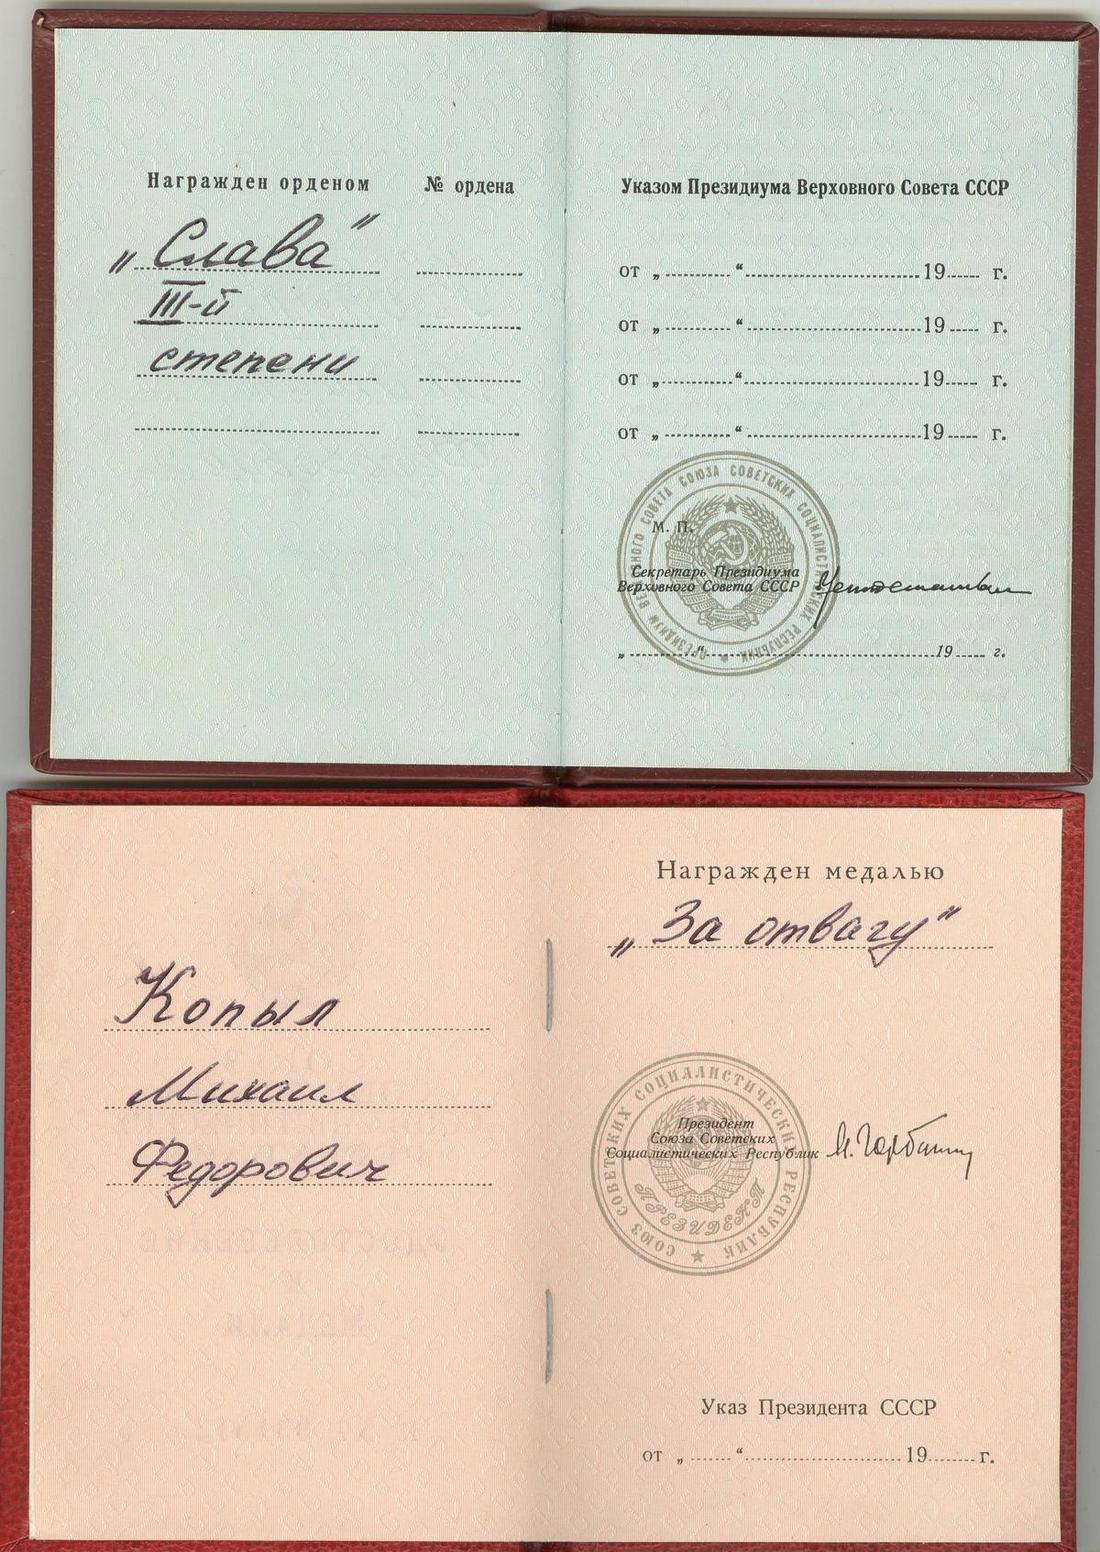 Награжден орденом № ордена
„Слава"
III-й
степени
Указом Президиума Верховного Совета СССР
от „ “ 19 г.
от „ “ 19 г.
от „ “ 19 г.
от „ “ 19 г.
ПРЕЗИДИУМ ВЕРХОВНОГО СОВЕТА СОЮЗА СОВЕТСКИХ СОЦИАЛИСТИЧЕСКИХ РЕСПУБЛИК
М. П.
Секретарь Президиума
Верховного Совета СССР
„ “ 19 г.
Копыл
Михаил
Федорович
Награжден медалью
„За отвагу"
СОЮЗ СОВЕТСКИХ СОЦИАЛИСТИЧЕСКИХ РЕСПУБЛИК
Президент
Союза Советских
Социалистических Республик М. Горбачев
ПРЕЗИДЕНТ
Указ Президента СССР
от „ “ 19 г.